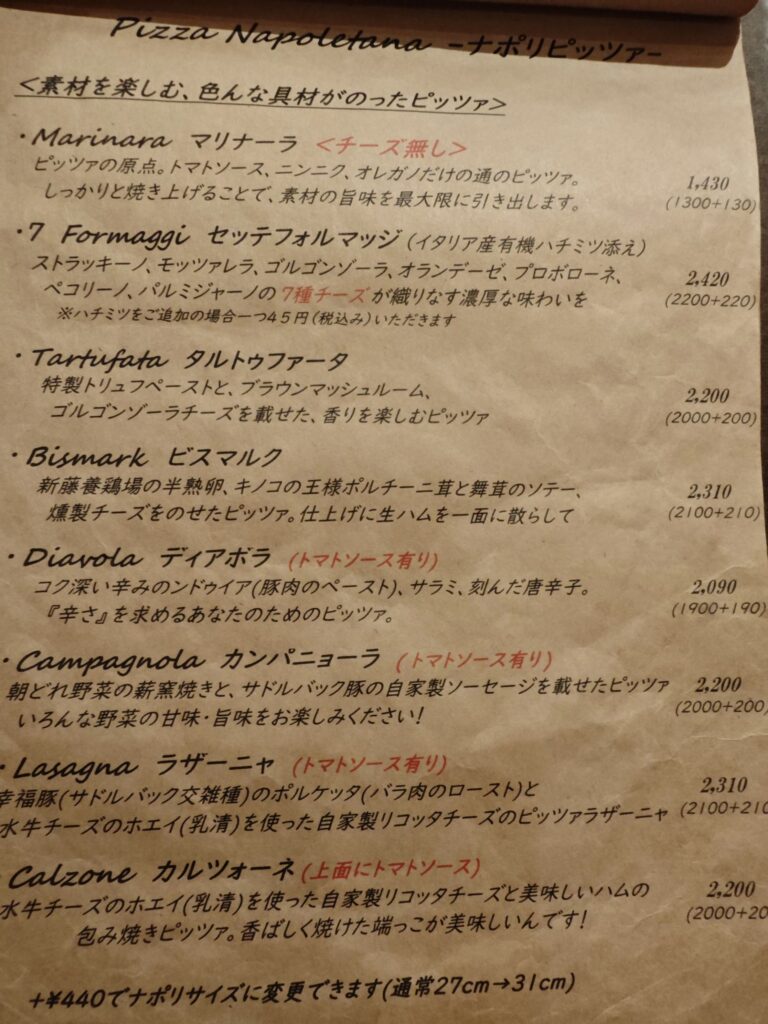 Pizza Napoletana -ナポリピッツァ-
<素材を楽しむ、色んな具材がのったピッツァ>
・Marinara マリナーラ <チーズ無し>
ピッツァの原点。トマトソース、ニンニク、オレガノだけの通のピッツァ。
しっかりと焼き上げることで、素材の旨味を最大限に引き出します。
1,430
(1300+130)
・7 Formaggi セッテフォルマッジ (イタリア産有機ハチミツ添え)
ストラッキーノ、モッツァレラ、ゴルゴンゾーラ、オランデーゼ、プロボローネ、
ペコリーノ、パルミジャーノの7種チーズが織りなす濃厚な味わいを
※ハチミツをご追加の場合一つ45円(税込み)いただきます
2,420
(2200+220)
・Tartufata タルトゥファータ
特製トリュフペーストと、ブラウンマッシュルーム、
ゴルゴンゾーラチーズを載せた、香りを楽しむピッツァ
2,200
(2000+200)
・Bismark ビスマルク
新藤養鶏場の半熟卵、キノコの王様ポルチーニ茸と舞茸のソテー、
燻製チーズをのせたピッツァ。仕上げに生ハムを一面に散らして
2,310
(2100+210)
・Diavola ディアボラ (トマトソース有り)
コク深い辛みのンドゥイア(豚肉のペースト)、サラミ、刻んだ唐辛子。
『辛さ』を求めるあなたのためのピッツァ。
2,090
(1900+190)
・Campagnola カンパニョーラ (トマトソース有り)
朝どれ野菜の薪窯焼きと、サドルバック豚の自家製ソーセージを載せたピッツァ
いろんな野菜の甘味・旨味をお楽しみください!
2,200
(2000+200)
・Lasagna ラザーニャ (トマトソース有り)
幸福豚(サドルバック交雑種)のポルケッタ(バラ肉のロースト)と
水牛チーズのホエイ(乳清)を使った自家製リコッタチーズのピッツァラザーニャ
2,310
(2100+210
・Calzone カルツォーネ(上面にトマトソース)
水牛チーズのホエイ(乳清)を使った自家製リコッタチーズと美味しいハムの
包み焼きピッツァ。香ばしく焼けた端っこが美味しいんです!
2,200
(2000+20
+¥440でナポリサイズに変更できます(通常27cm→31cm)